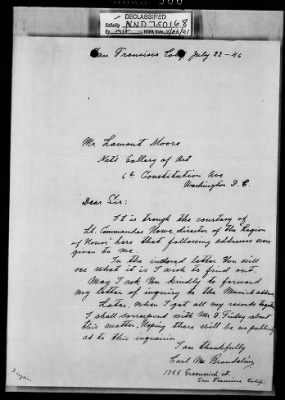 DECLASSIFIED
Authority NND 750168
San Francisco Cal July 22-46
Mr Lamont Moore
Nat'l Gallery of Art
6th Constitution Ave
Washington D.C.
Dear Sir:
It is trough the courtesy of
Lt. Commander Howe, director of the Legion
of Honor here that following addresses were
given to me.
In the inclosed letter You will
see what it is I wish to find out.
May I ask You kindly to forward
my letter of inquiry to the
Later, when I got all my records together
I shall correspond with Mr D. Finley about
this matter. Hoping there will be no publicity
as to this inquirie.
I am thankfully
Carl
1755 Greenwich st.
San Francisco Calif.